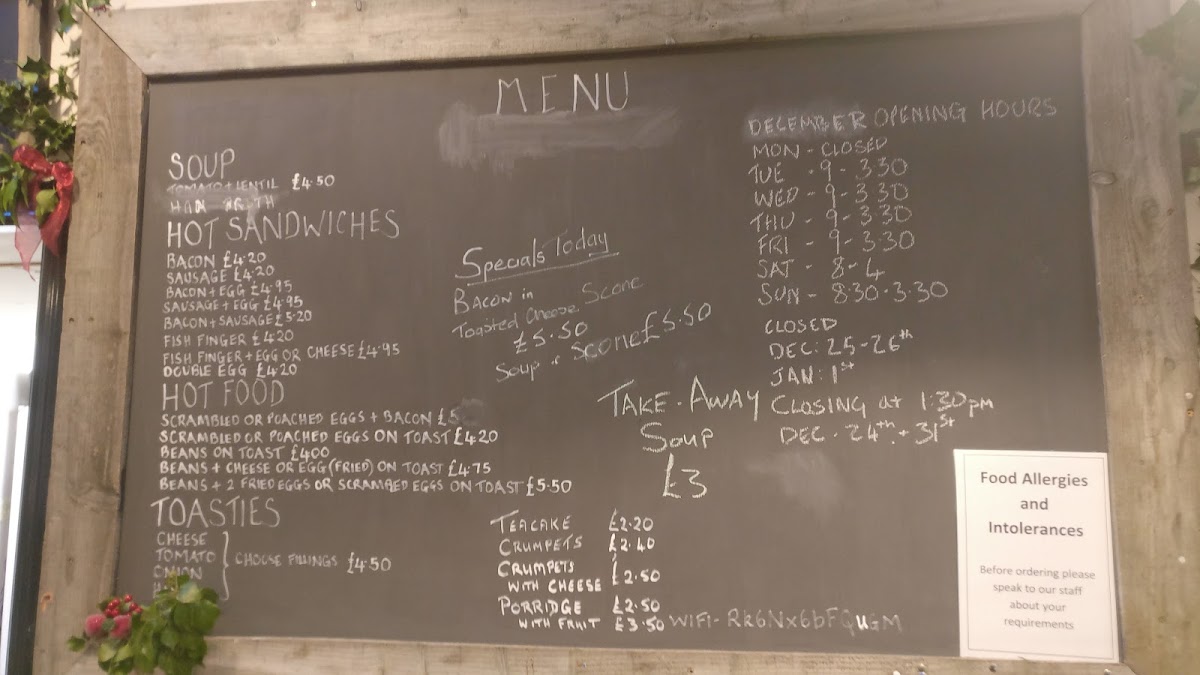 MENU
SOUP
TOMATO + LENTIL £4.50
HOT SANDWICHES
BACON £4.20
SAUSAGE £4.20
BACON + EGG £4.95
SAUSAGE + EGG £4.95
BACON + SAUSAGE £5.20
FISH FINGER £4.20
FISH FINGER + EGG OR CHEESE £4.95
DOUBLE EGG £4.20
HOT FOOD
SCRAMBLED OR POACHED EGGS + BACON £5
SCRAMBLED OR POACHED EGGS ON TOAST £4.20
BEANS ON TOAST £4.00
BEANS + CHEESE OR EGG (FRIED) ON TOAST £4.75
BEANS + 2 FRIED EGGS OR SCRAMBED EGGS ON TOAST £5.50
TOASTIES
CHEESE
TOMATO
ONION
CHOOSE FILLINGS £4.50
Specials Today
BACON in
Toasted Cheese Scone
£5.50
Soup + Scone £5.50
TAKE-AWAY
SOUP
£3
TEACAKE £2.20
CRUMPETS £2.40
CRUMPETS
WITH CHEESE £2.50
PORRIDGE £2.50
WITH FRUIT £3.50
WIFI - RR6Nx6bFQUGM
DECEMBER OPENING HOURS
MON - CLOSED
TUE - 9 - 3.30
WED - 9 - 3.30
THU - 9 - 3.30
FRI - 9 - 3.30
SAT - 8 - 4
SUN - 8.30 - 3.30
CLOSED
DEC: 25 - 26th
JAN: 1st
CLOSING at 1:30pm
DEC - 24th + 31st
Food Allergies
and
Intolerances
Before ordering please
speak to our staff
about your
requirements